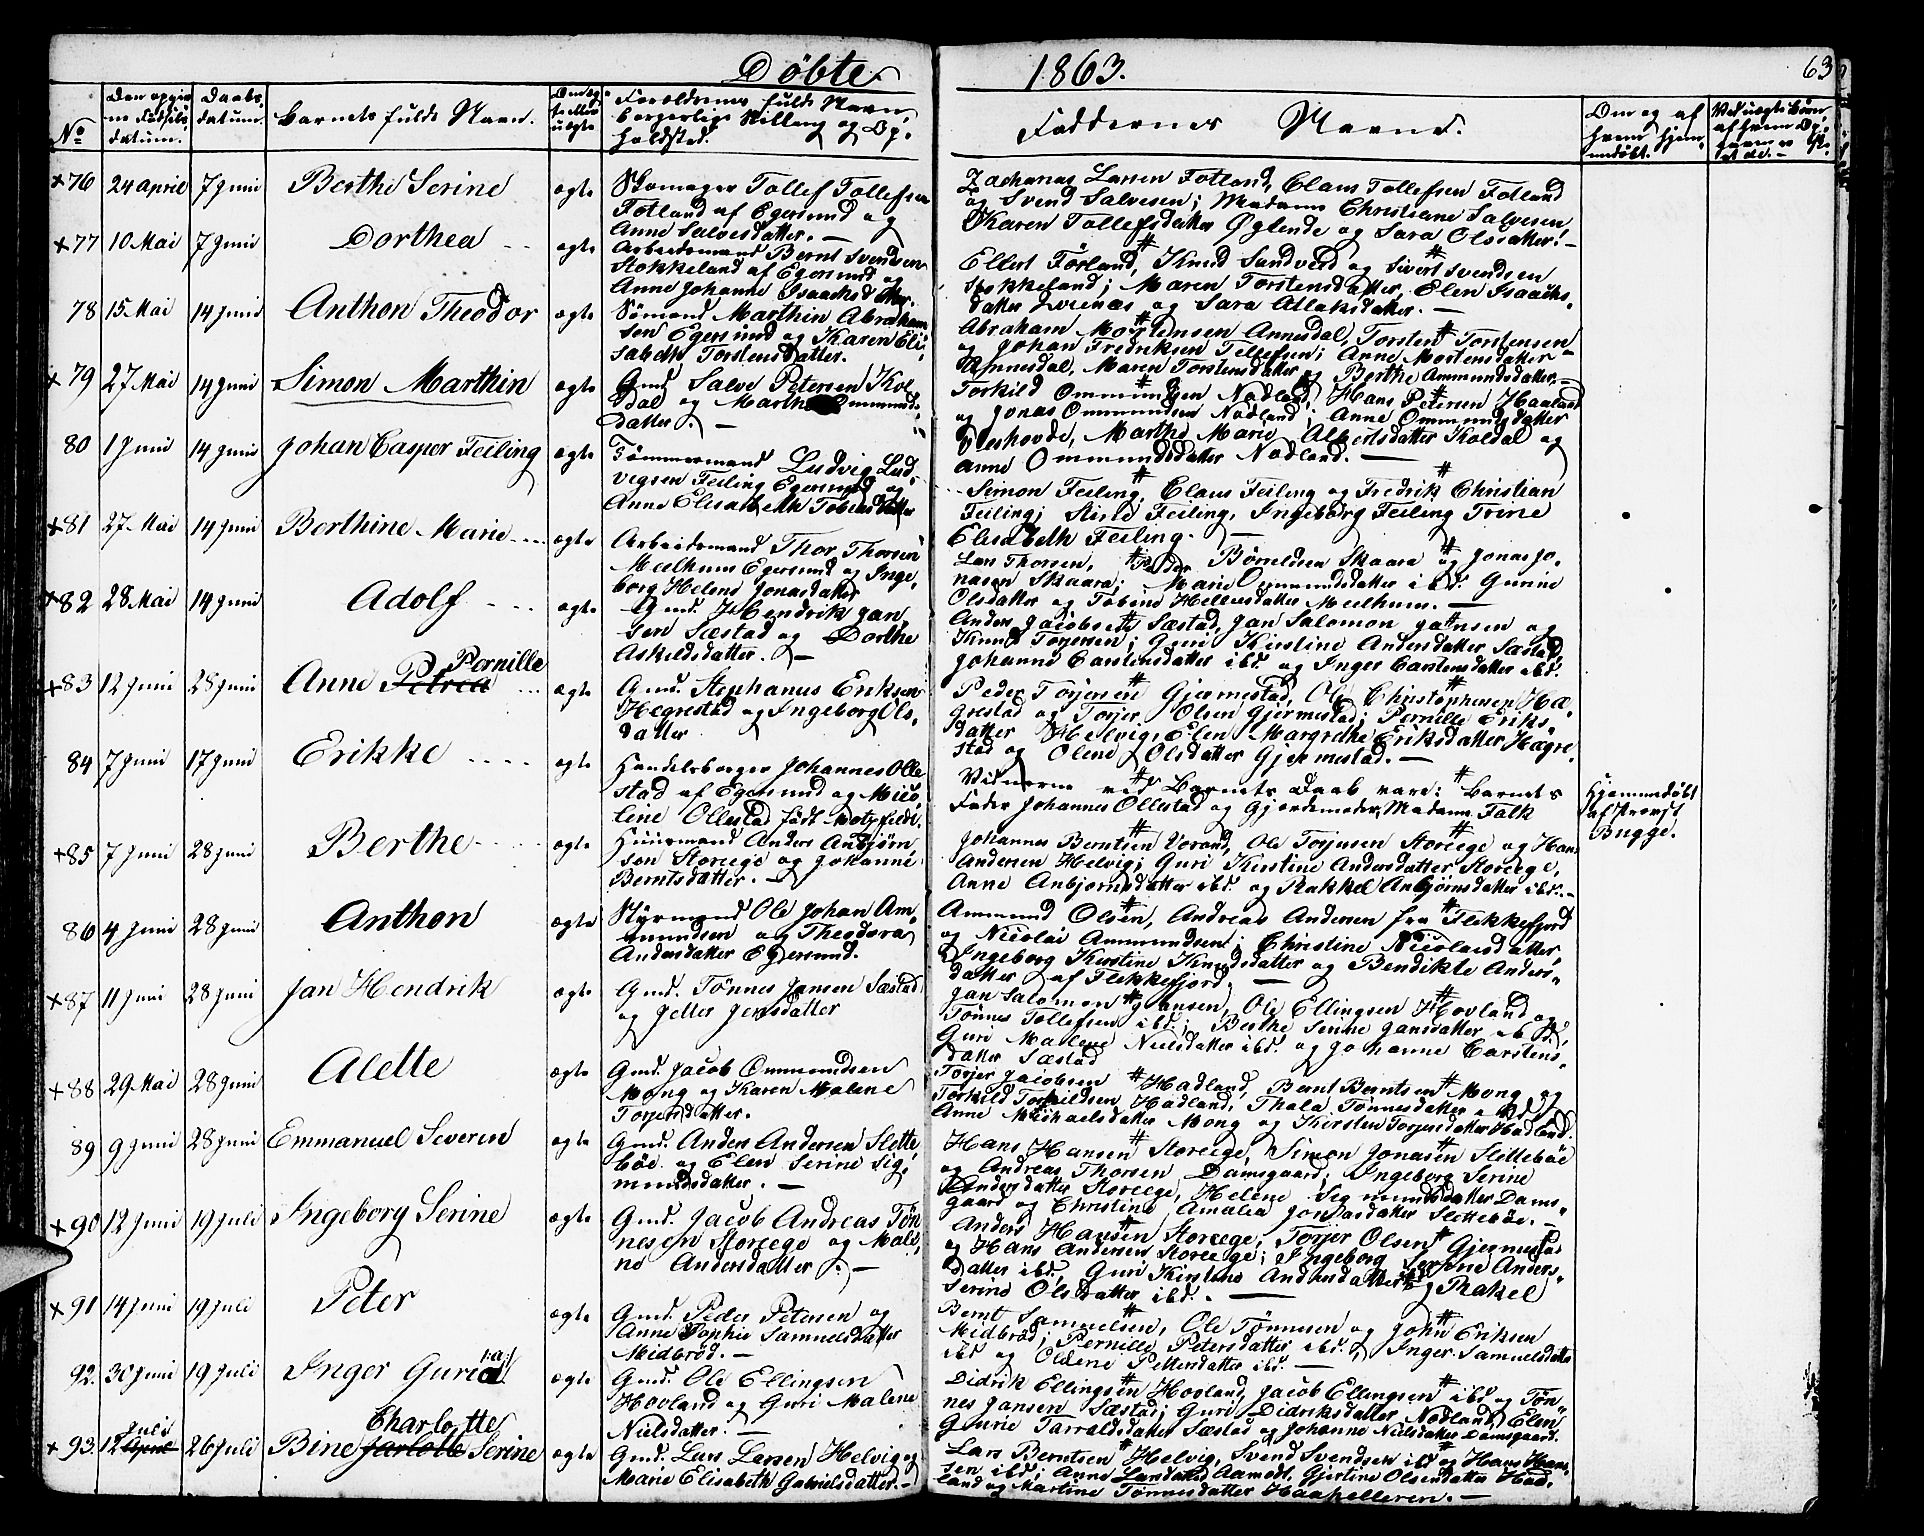 Döbte 1863. 63
No
Den opgiv
ne Födsels
datum.
Daabs
datum.
Barnets fulde Navn.
Om æg
te eller
uægte
Forældrenes fulde Navn,
borgerlige Stilling og Op,
holdsted.
Faddernes Navne.
Om og af
hvem hjem
medöbt.
×76 24 April 7 Juni Berthe Serine ægte
Skomager Tollef Tollefsen
Fotland af Egersund og
Anne Salvesdatter. —
Zacharias Larsen Fotland, Claus Tollefsen Fotland
og Svend Salvesen; Madame Christiane Salvesen,
Karen Tollefsdatter Öglende og Sara Olsdatter. —
×77 10 Mai 7 Juni Dorthea ægte
Arbeidsmand Bernt Svendsen
Stokkeland af Egersund og
Anne Johanne Isaachsdatter.
Ellert Förland, Knud Sandved og Sivert Svendsen
Stokkeland; Maren Torstensdatter, Elen Isaachs,
datter og Sara Atlaksdatter. —
78 15 Mai 14 Juni Anthon Theodor ægte
Sömand Marthin Abraham
sen Egersund og Karen Eli,
sabeth Torstensdatter.
Abraham Mortensen Annesdal, Torsten Torstensen
og Johan Fredriksen Tellefsen; Anne Mortensdatter
Annesdal, Maren Torstensdatter og Berthe Ammundsdatter. —
×79 27 Mai 14 Juni Simon Marthin ægte
Gmd. Salve Petersen Kol
dal og Marthe Ommunds
datter. —
Torkild Ommundsen Nodland, Hans Petersen Haaland
og Jonas Ommundsen Nodland; Anne Ommundsdatter
Marthe Marie Albertsdatter Koldal og
Anne Ommundsdatter Nodland. —
80 1 Juni 14 Juni Johan Casper Feiling ægte
Tömmermand Ludvig Lud,
vigsen Feiling Egersund og
Anne Elisabeth Tobiasdatter
Simon Feiling, Claus Feiling og Fredrik Christian
Feiling; Feiling, Ingeborg Feiling Trine
Elisabeth Feiling. —
×81 27 Mai 14 Juni Berthine Marie ægte
Arbeidsmand Thor Thorsen
Mælhuus Egersund og Inge,
borg Helene Jonasdatter
Lars Thorsen, Peder Börildsen Skaara og Jonas Jo,
nasen Skaara; Marie Ommundsdatter ibd. Gurine
Olsdatter og Tobine Hellesdatter Mælhuus. —
×82 28 Mai 14 Juni Adolf ægte
Gmd. Hendrik Jan,
sen Sæstad og Dorthe
Askildsdatter. —
Anders Jacobsen Sæstad, Jan Salomon Jansen og
Knud Torjersen; Guri Kirstine Andersdatter Sæstad,
Johanne Carstensdatter ibd. og Inger Carstensdatter ibd.
×83 12 Juni 28 Juni Anne Petrea Pernille ægte
Gmd. Stephanus Eriksen
Hegrestad og Ingeborg Ols,
datter
Peder Torjersen Gjermestad, Ole Christophersen Hæ,
grestad og Torjer Olsen Gjermestad; Pernille Eriks,
datter Helvig, Elen Margrethe Eriksdatter Hægre,
stad og Olene Olsdatter Gjermestad. —
84 7 Juni 17 Juni Erikke ægte
Handelsborger Johannes Olle
stad af Egersund og Nico,
line Ollestad födt Motzfeldt.
Vidnerne ved Barnets Daab vare: Barnets
Fader Johannes Ollestad og Gjordemoder, Madame Falk
Hjemmedöbt
af Provst
Bugge.
×85 7 Juni 28 Juni Berthe ægte
Huusmand Anders Anbjörn
sen Storeege og Johanne
Berntsdatter. —
Johannes Berntsen Vorand, Ole Torjusen Storeege og Hans
Andersen Helvig; Guri Kirstine Andersdatter Storeege,
Anne Anbjornsdatter ibd. og Rakkel Anbjörnsdatter ibd. —
86 4 Juni 28 Juni Anthon ægte
Styrmand Ole Johan Am,
mundsen og Theodora
Andersdatter Egersund.
Ammund Olsen, Andreas Andersen fra Flekkefjord
og Nicolai Ammundsen; Christine Nicolaisdatter,
Ingeborg Kirstine Knudsdatter og Bendikte Anders,
datter af Flekkefjord. —
×87 11 Juni 28 Juni Jan Hendrik ægte
Gmd. Tönnes Jansen Sæstad
og Jetter Jensdatter
Jan Salomon Jansen, Ole Ellingsen Hovland og
Tönnes Tollefsen ibd.; Berthe Serine Jansdatter ibd.,
Guri Malene Nielsdatter ibd. og Johanne Carstens,
datter Sæstad
×88 29 Mai 28 Juni Alette ægte
Gmd. Jacob Ommundsen
Mong og Karen Malene
Torjersdatter.
Torjer Jacobsen Hadland, Bernt Berntsen Mong og
Torkild Torkildsen Hadland, Thala Tönnesdatter ibd.
Anne Michaelsdatter Mong og Kirsten Torjersdatter Hadland.
89 9 Juni 28 Juni Emmanuel Severin ægte
Gmd. Anders Andersen Slette
böe og Elen Serine Sig,
mundsdatter. —
Hans Hansen Storeege, Simon Jonasen Slettebøe
og Andreas Thorsen Damsgaard; Ingeborg Serine
Andersdatter Storeege, Helene Sigmundsdatter Dams,
gaard og Christine Amalia Jonasdatter Slettebøe. —
×90 12 Juni 19 Juli Ingeborg Serine ægte
Gmd. Jacob Andreas Tön
nesen Storeege og Male,
ne Andersdatter. —
Anders Hansen Storeege, Torjer Olsen Gjermestad
og Hans Andersen Storeege; Ingeborg Serine Anders,
datter ibd., Guri Kirstine Andersdatter og Rakel
Serine Olsdatter ibd. —
×91 14 Juni 19 Juli Peter ægte
Gmd. Peder Petersen og
Anne Sophie Samuelsdatter
Midbröd. —
Bernt Samuelsen, Ole Tönnesen og John Eriksen
Midbröd; Pernille Petersdatter ibd., Inger Samuelsdatter
ibd og Oldene Pettersdatter ibd. —
92. 30 Juni 19 Juli Inger Guria ægte
Gmd. Ole Ellingsen
Hovland og Guri Malene
Nielsdatter. —
Didrik Ellingsen Hovland, Jacob Ellingsen ibd og Tön,
nes Jansen Sæstad; Guri Didriksdatter Nodland, Elen
Gurie Tarraldsdatter Sæstad og Johanne Nielsdatter Damsgaard.
×93. 12 April Juli 26 Juli Bine Jarlotte Charlotte Serine ægte
Gmd. Lars Larsen Helvig og
Marie Elisabeth Gabrielsdatter. —
Lars Berntsen Helvig, Svend Svendsen ibd og Hans Hans,
sen ibd; Anne Larsdatter Aamodt, Gjertine Olsdatter Had,
land og Martine Tönnesdatter Haapelleren. —